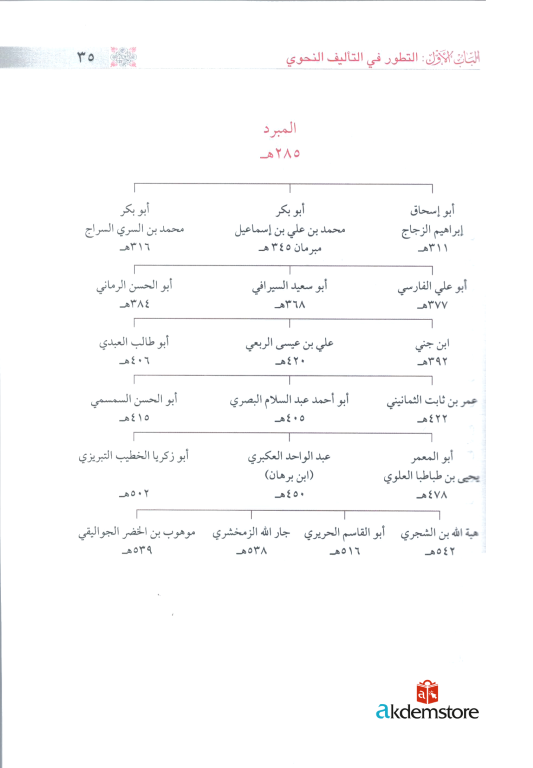 الباب الأول: التطور في التأليف النحوي ٣٥
المبرد
٢٨٥هـ
أبو إسحاق أبو بكر أبو بكر
إبراهيم الزجاج محمد بن علي بن إسماعيل محمد بن السري السراج
٣١١هـ مبرمان ٣٤٥ هـ ٣١٦هـ
أبو علي الفارسي أبو سعيد السيرافي أبو الحسن الرماني
٣٧٧هـ ٣٦٨هـ ٣٨٤هـ
ابن جني علي بن عيسى الربعي أبو طالب العبدي
٣٩٢هـ ٤٢٠هـ ٤٠٦هـ
عمر بن ثابت الثمانيني أبو أحمد عبد السلام البصري أبو الحسن السمسمي
٤٢٢هـ ٤٠٥هـ ٤١٥هـ
أبو المعمر عبد الواحد العكبري أبو زكريا الخطيب التبريزي
يحيى بن طباطبا العلوي (ابن برهان)
٤٧٨هـ ٤٥٠هـ ٥٠٢هـ
هبة الله بن الشجري أبو القاسم الحريري جار الله الزمخشري موهوب بن الخضر الجواليقي
٥٤٢هـ ٥١٦هـ ٥٣٨هـ ٥٣٩هـ
akdemstore